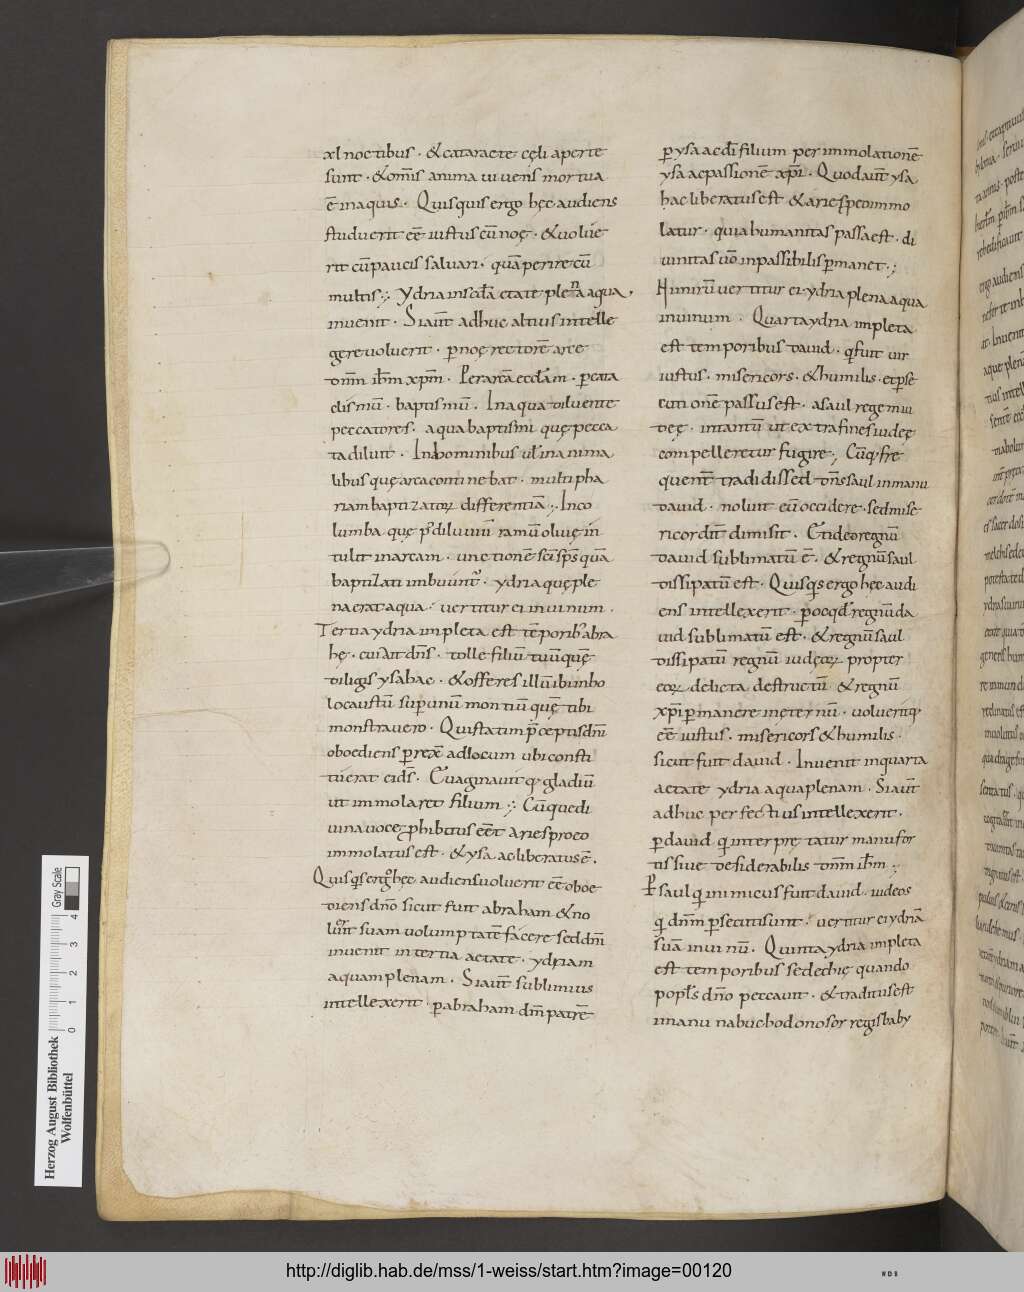 xl noctibus · & cataracte cęli aperte
sunt · & om̄is anima uiuens mortua
ē in aquis · Quisquis ergo hęc audiens
studuerit eē iustus cū noe · & uolue
rit cū paucis saluari · quā perire cū
multis ·; ydria in scd̄a etate plena aqua ·
inuenit · Si aut̄ adhuc altius intelle
gere uoluerit · p noę rectorē arce
dn̄m ih̄m xp̄m · Per arcā eccl̄am · p cata
clismū · baptismū · In aqua diluente
peccatores · aqua baptismi quę pecca
ta diluit · In hominibus ul̄ in anima
libus quę arca continebat · multipha
riam baptizatoꝝ differentiā ·; In co
lumba quę p̄ diluuiū ramū oliuę in
tulit in arcam · unctionē sc̄i sp̄s quā
baptizati imbuunt᷒ · ydria quę ple
na erat aqua · uertitur ei in uinum ·
Tertia ydria impleta est tēporib; abra
hę · cui ait dn̄s · tolle filiū tuū quē
diligis ysahac · & offeres illū ibi in ho
locaustū sup unū montiū quē tibi
monstrauero · Qui statim p̄ceptis dn̄i
oboediens perrex̄ ad locum ubi consti
tuerat ei dn̄s · Euaginauit q; gladiū
ut immolaret filium ·; Cūque di
uina uoce phibitus eēt aries pro eo
immolatus est · & ysaac liberatus ē ·
Quisq̄s ergo hęc audiens uoluerit eē oboe
diens dn̄o sicut fuit abraham & no
luerit suam uolumptatē facere sed dn̄i
inuenit in tertia aetate · ydriam
aquam plenam · Si aut̄ sublimius
intellexerit · p abraham dm̄ patrē
p ysaac di filium per immolationē
ysaac passionē xp̄i · Quod aut̄ ysa
hac liberatus est & aries p eo immo
latur · quia humanitas passa est · di
uinitas uō inpassibilis p manet ·;
Nimirū uertitur ei ydria plena aqua
in uinum · Quarta ydria impleta
est temporibus dauid · q fuit uir
iustus · misericors · & humilis · et p se
cutionē passus est · a saul rege iu
deę · in tantū ut extra fines iudeę
compelleretur fugire ·; Cūq; fre
quent̄ tradidisset dn̄s saul in manu
dauid · noluit eū occidere · sed mise
ricordit̄ dimisit · Et ideo regnū
dauid sublimatū ē · & regnū saul
dissipatū est · Quisq̄s ergo hęc audi
ens intellexerit · p o cqd̄ regnū da
uid sublimatū est · & regnū saul
dissipatū regnū iudęoꝝ propter
eoꝝ delicta destructū & regnū
xp̄i p manere in ęternū · uoluerit q;
eē iustus · misericors & humilis ·
sicut fuit dauid · Inuenit in quarta
aetate ydria aqua plenam · Si aut̄
adhuc perfectius intellexerit ·
p dauid qui interpretatur manu for
tis siue desiderabilis dn̄m ih̄m ·;
P saul qui inimicus fuit dauid · iudeos
qui dn̄m p secuti sunt · uertitur ei ydriā
suā in uinū · Quinta ydria impleta
est temporibus sedechię quando
popl̄s dn̄o peccauit · & traditus est
in manu nabuchodonosor regis baby
Herzog August Bibliothek
Wolfenbüttel
0 1 2 3 4
Gray Scale
http://diglib.hab.de/mss/1-weiss/start.htm?image=00120